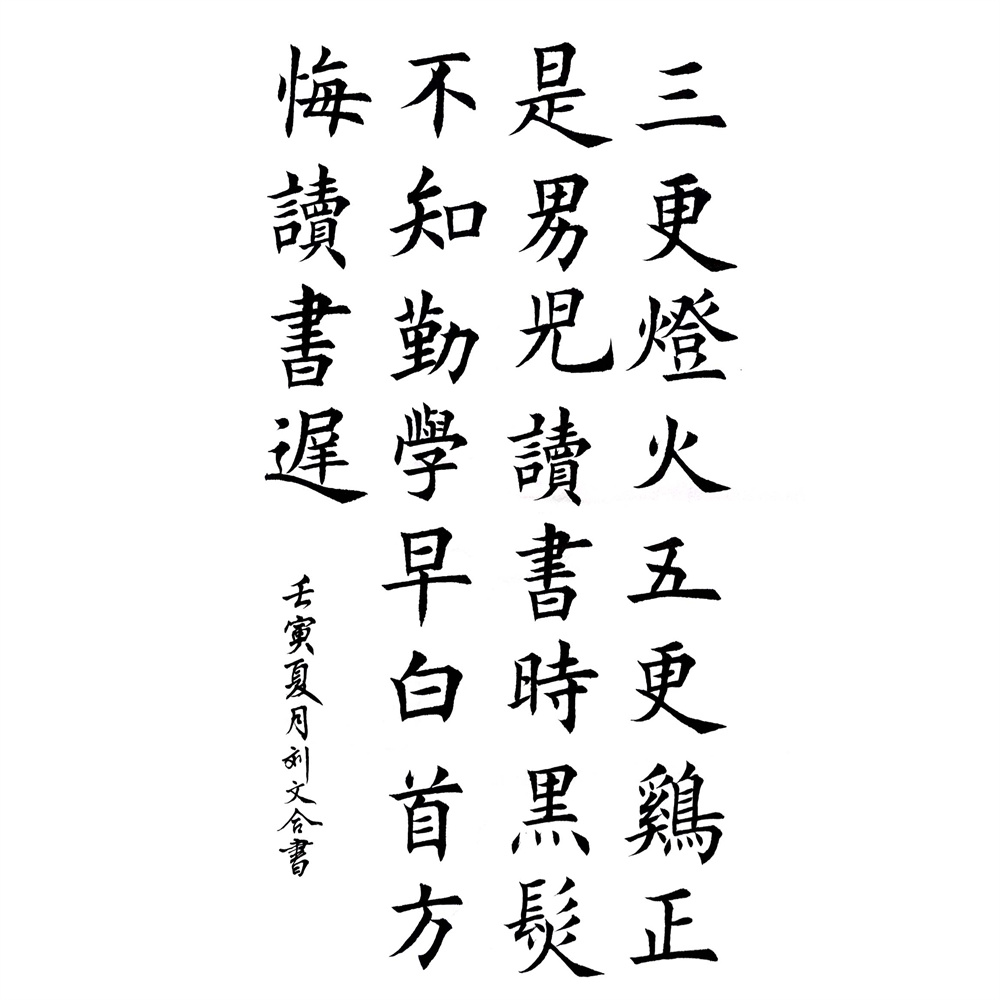 三更燈火五更鷄正
是男児讀書時黒髮
不知勤學早白首方
悔讀書遲
壬寅夏月刘文合書